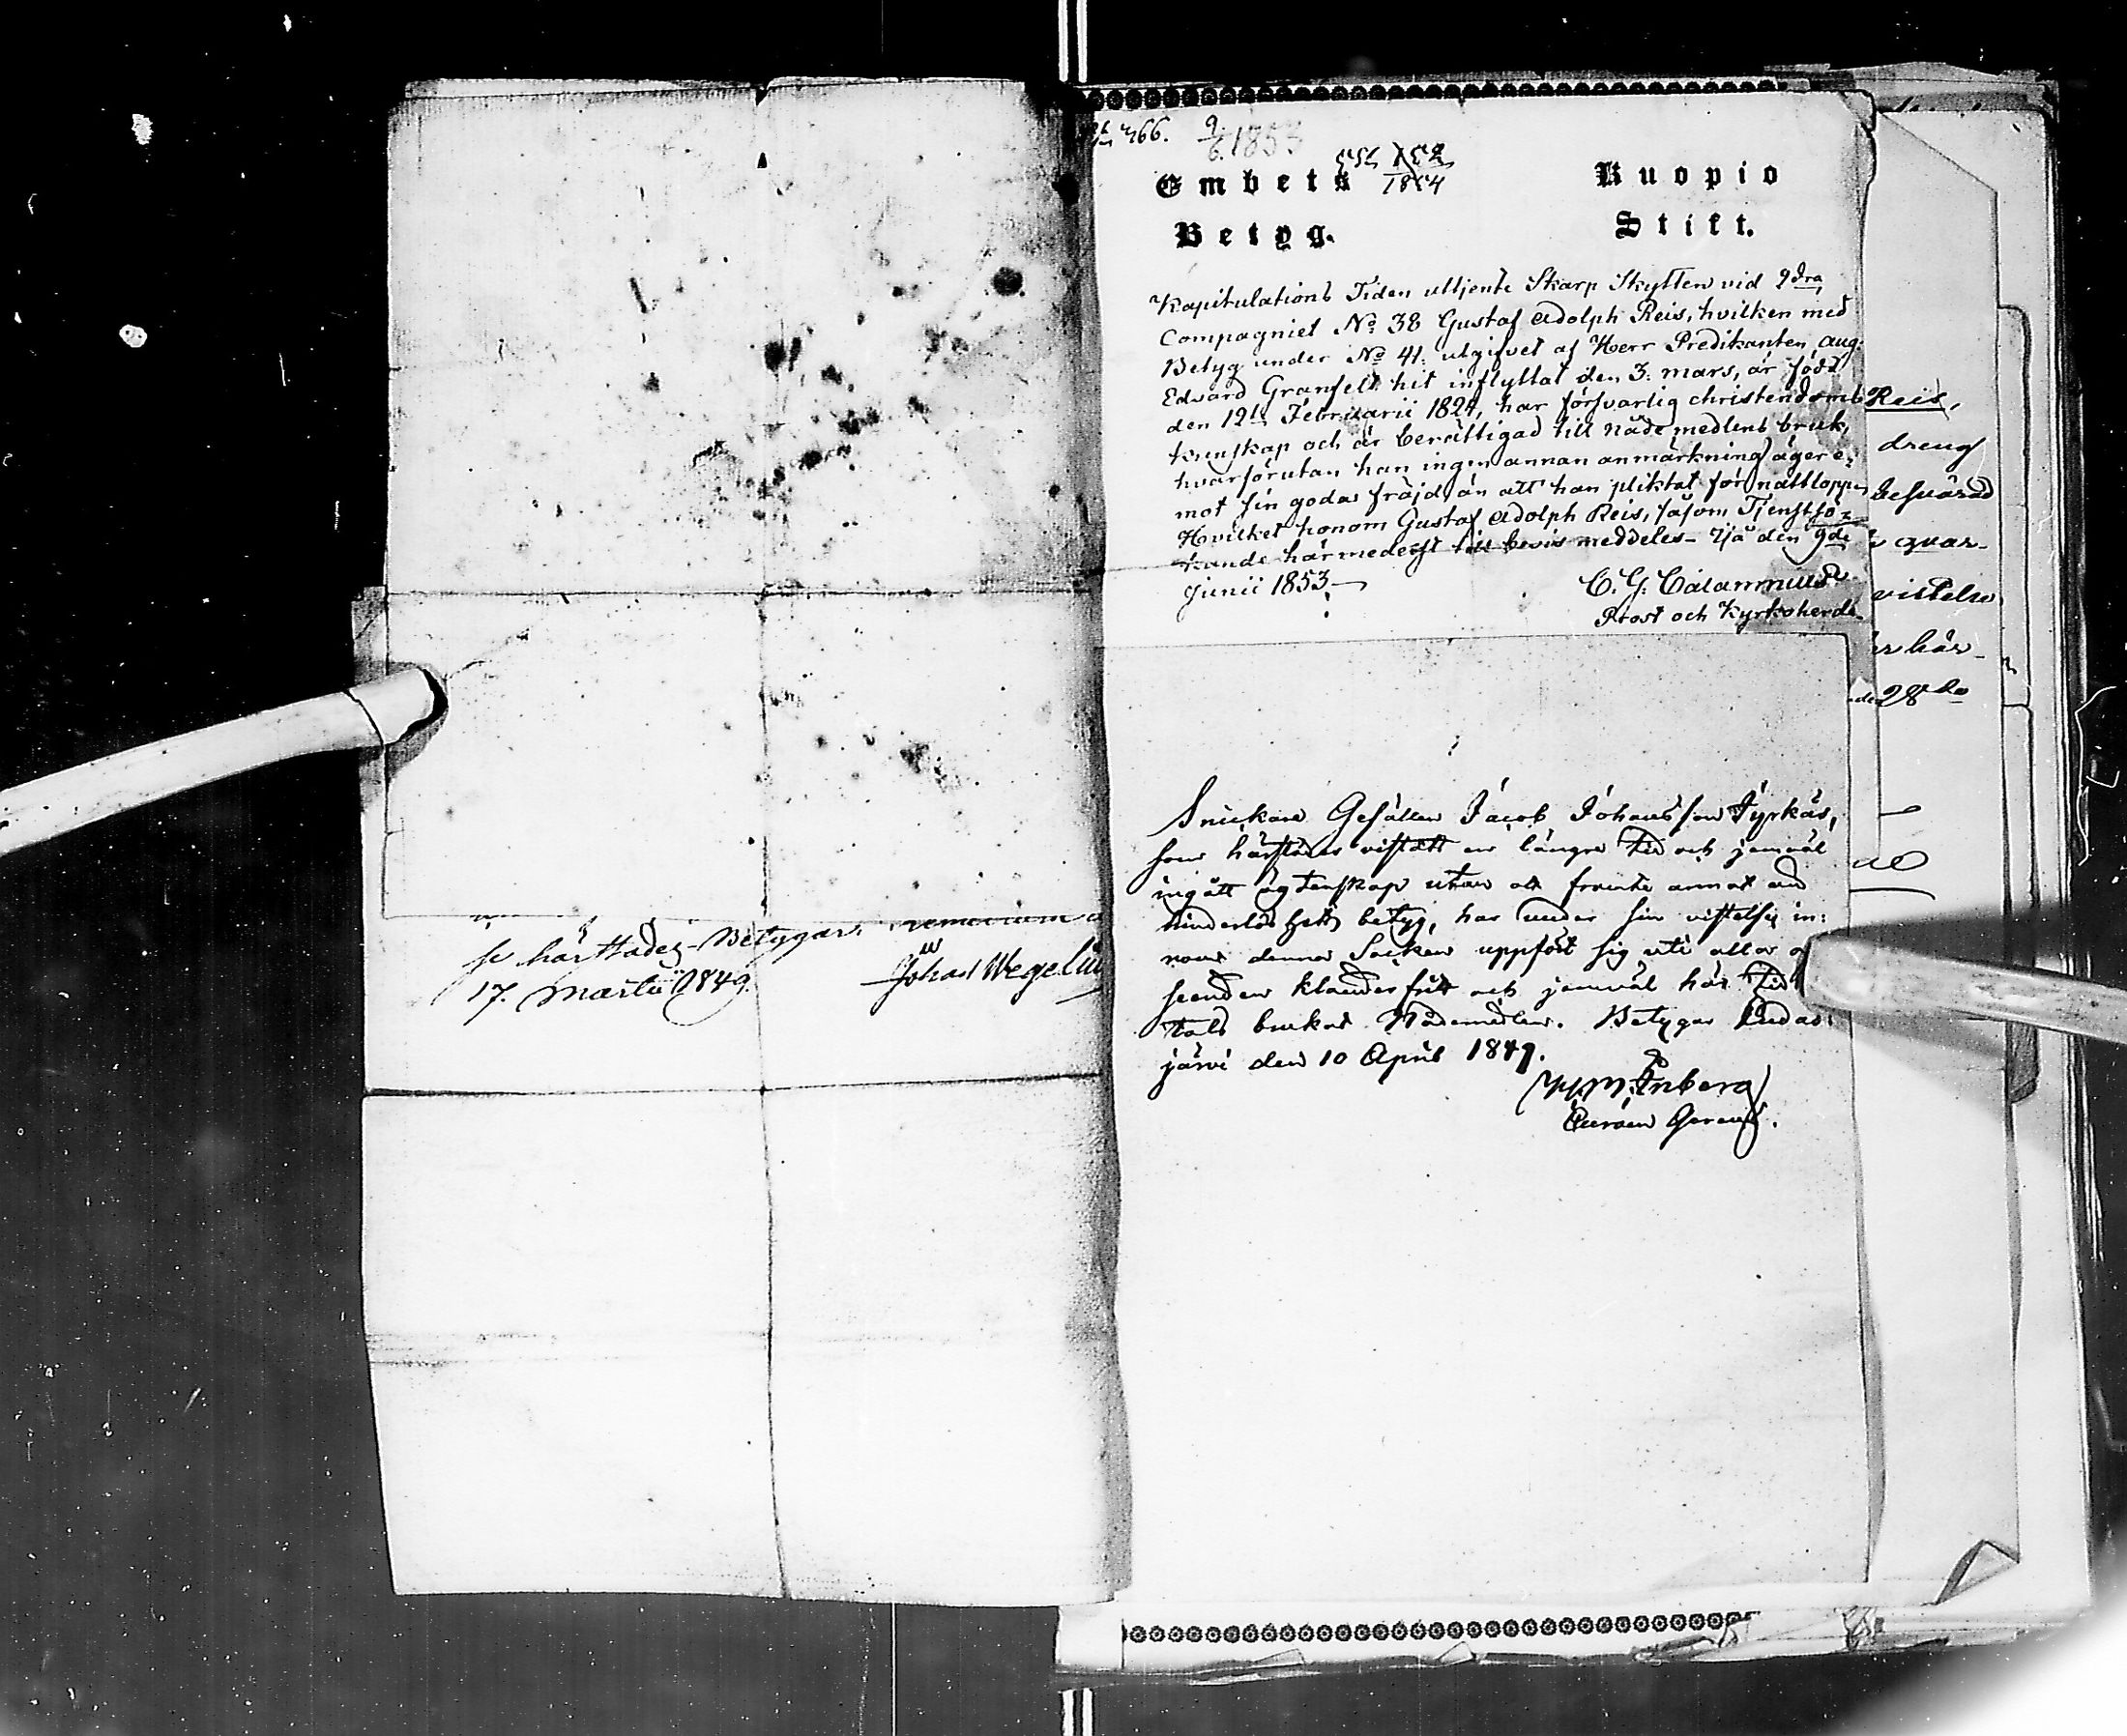 se härstädes Betygar
17. Martii 1849.
Johan Wegelius
466. 9/6. 1853
Embets Kuopio
Betyg. Stift.
Kapitulations Tiden uttjente Skarp Skytten vid 2dra
Compagniet No: 38 Gustaf Adolph Reis, hvilken med
Betyg under No 41. utgifvet af Herr Predikanten Aug.
Edvard Granfelt hit inflyttat den 3. mars, är född
den 12te Februarii 1824, har försvarlig christendoms
kunskap och är berättigad till nådemedlens bruk,
hvarförutan han ingen annan anmärkning äger e=
mot sin goda fräjd än att han pliktat för nattlopp.
Hvilket honom Gustaf Adolph Reis, såsom Tjenstsö=
kande härmedelst till bevis meddeles Ijå den 9de
Junii 1853.
C. G. Calamnius
Prost och Kyrkoherde
Snickare Gesällen Jacob Johansson Tyrkäs,
som härstädes vistats en längre tid och jemväl
ingått ägtenskap utan att framte annat än
hinderlöshets betyg, har under sin vistelse in:
nom denna Socken uppfört sig uti allt
seenden klanderfritt och jemväl här
tals brukat Nådemedlen. Betygar Pudas:
järvi den 10 April 1849.
Enberg
Curam Gerens.
Reis,
dreng
besvärad
quar-
vistelse
här
28de